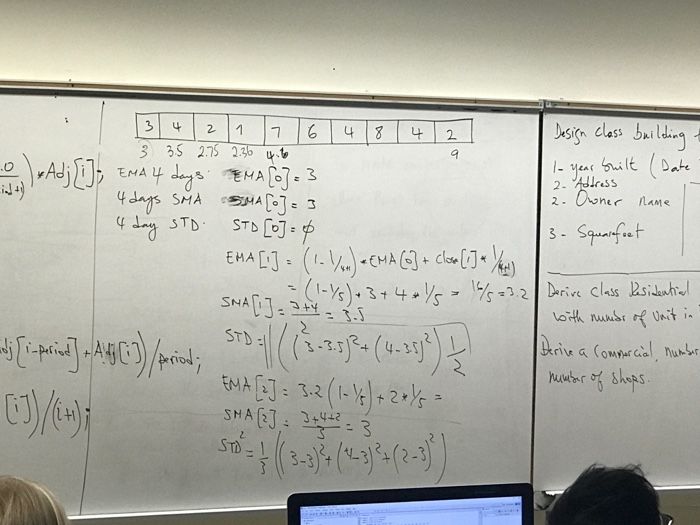 3 4 2 1 7 6 4 8 4 2
3 3.5 2.75 2.36 4.6 9
) * Adj[i];
EMA 4 days EMA[0] = 3
4 days SMA SMA[0] = 3
4 day STD. STD[0] = φ
EMA[1] = (1-1/4+1) * EMA[0] + Close[1] * 1/(4+1)
= (1-1/5) * 3 + 4 * 1/5 = 16/5 = 3.2
SMA[1] = 3+4/2 = 3.5
STD = √((3-3.5)²+(4-3.5)²) 1/2
Adj[i-period] + Adj[i])/period;
EMA[2] = 3.2(1-1/5) + 2 * 1/5 =
SMA[2] = 3+4+2/3 = 3
[i])/(i+1);
STD² = 1/3((3-3)²+(4-3)²+(2-3)²)
Design class building
1- year built (Date
2- Address
2- Owner name
3- Squarefeet
Derive class Residential
with number of Unit in
Derive a Commercial, number
number of shops.